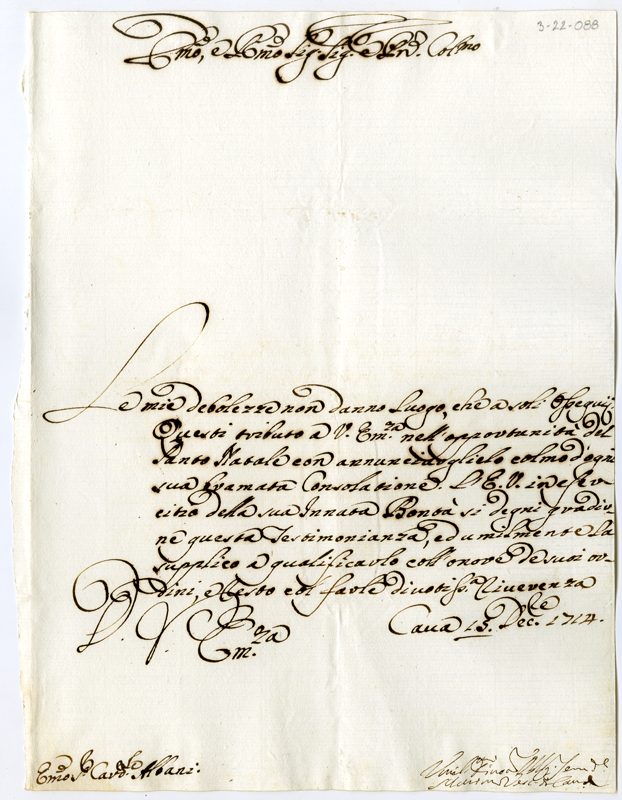 3-22-088
Emo, e Rmo Sig. Sig. e Prõn. Colmo
Le mie debolezze non danno luogo, che a soli Ossequij
Questi tributo a V. Em.za nell'opportunità del
Santo Natale con annunciarglielo colmo d'ogni
sua bramata Consolatione. L'E.V. in eser-
citio della sua Innata Bontà si degni gradir-
ne questa Testimonianza, ed umilmente la
supplico a qualificarlo coll'onore de suoi or-
dini, e resto col farle divotiss.a Riverenza
D. V. Em.za
Cava 15. Dec.re 1714.
Emo Sr. Card.le Albani.